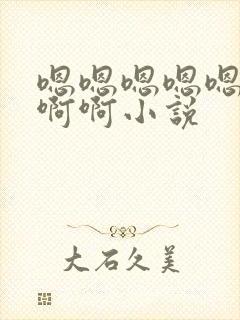 嗯嗯嗯嗯嗯
啊啊小説
大石久美